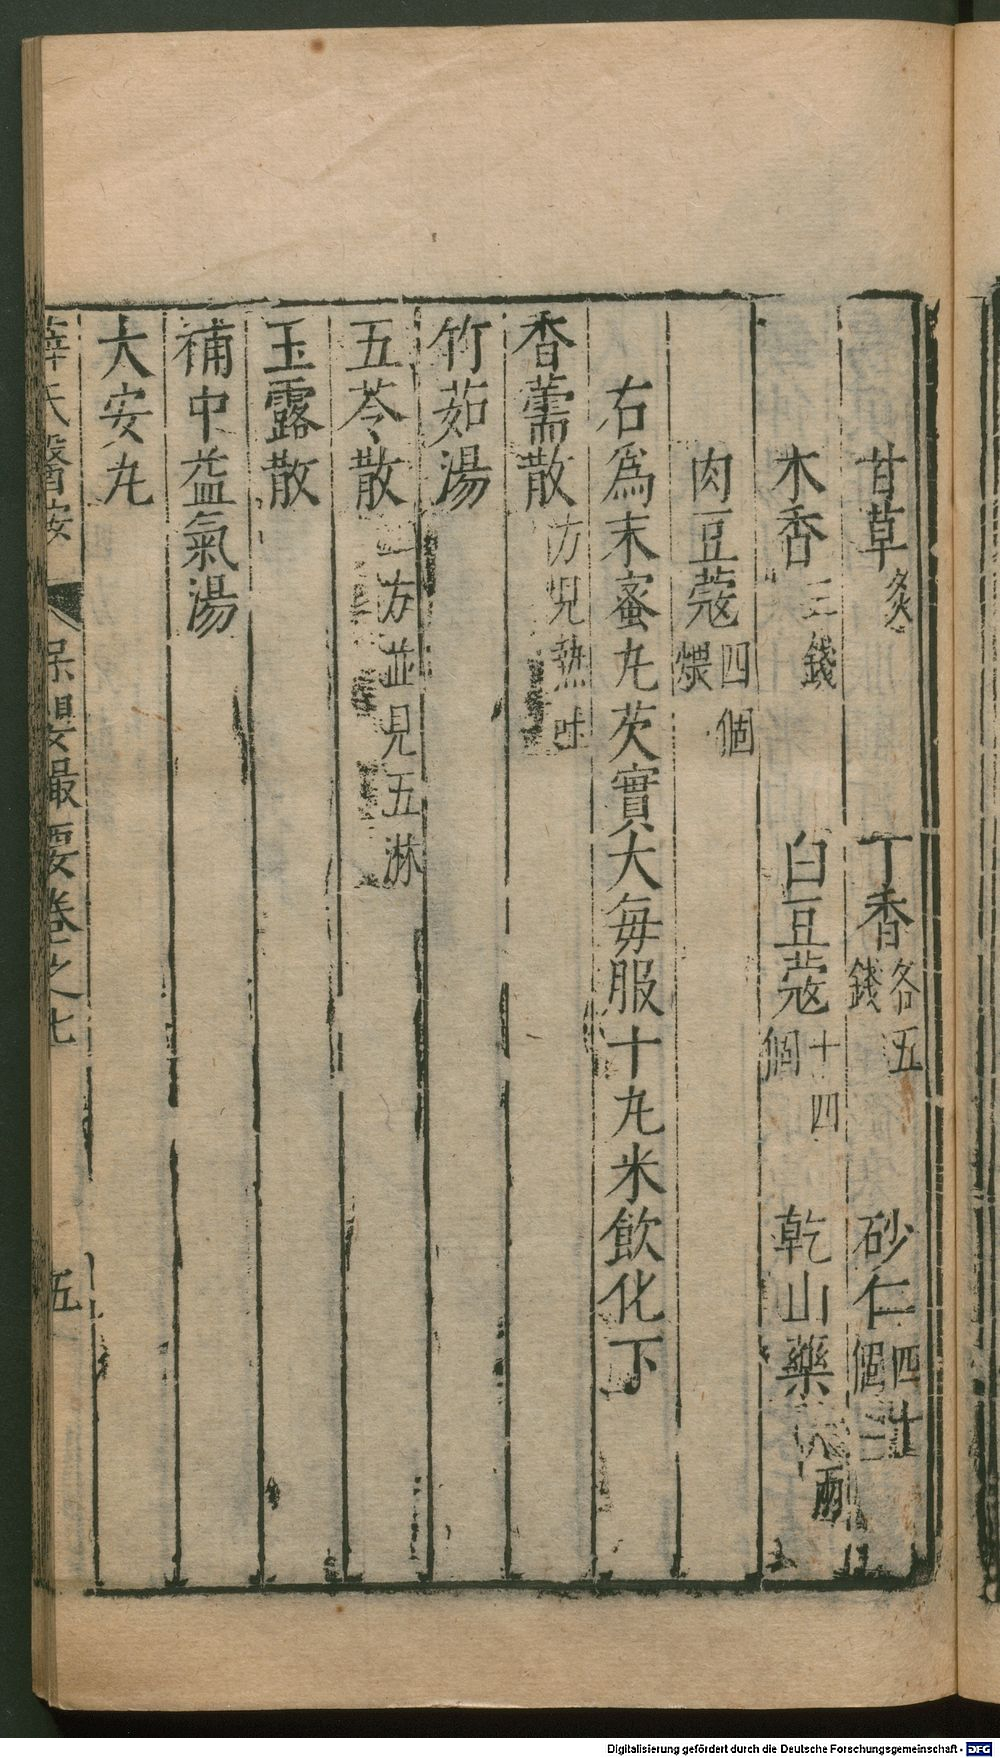 甘草炙　丁香各五錢　砂仁四十個
木香三錢　白豆蔻十四個　乾山藥　兩
肉豆蔻四個煨
右爲末蜜丸芡實大每服十丸米飲化下
香薷散方見熱吐
竹茹湯
五苓散二方並見五淋
玉露散
補中益氣湯
大安丸
薛氏醫案　保嬰撮要卷之七　五
Digitalisierung gefördert durch die Deutsche Forschungsgemeinschaft - DFG